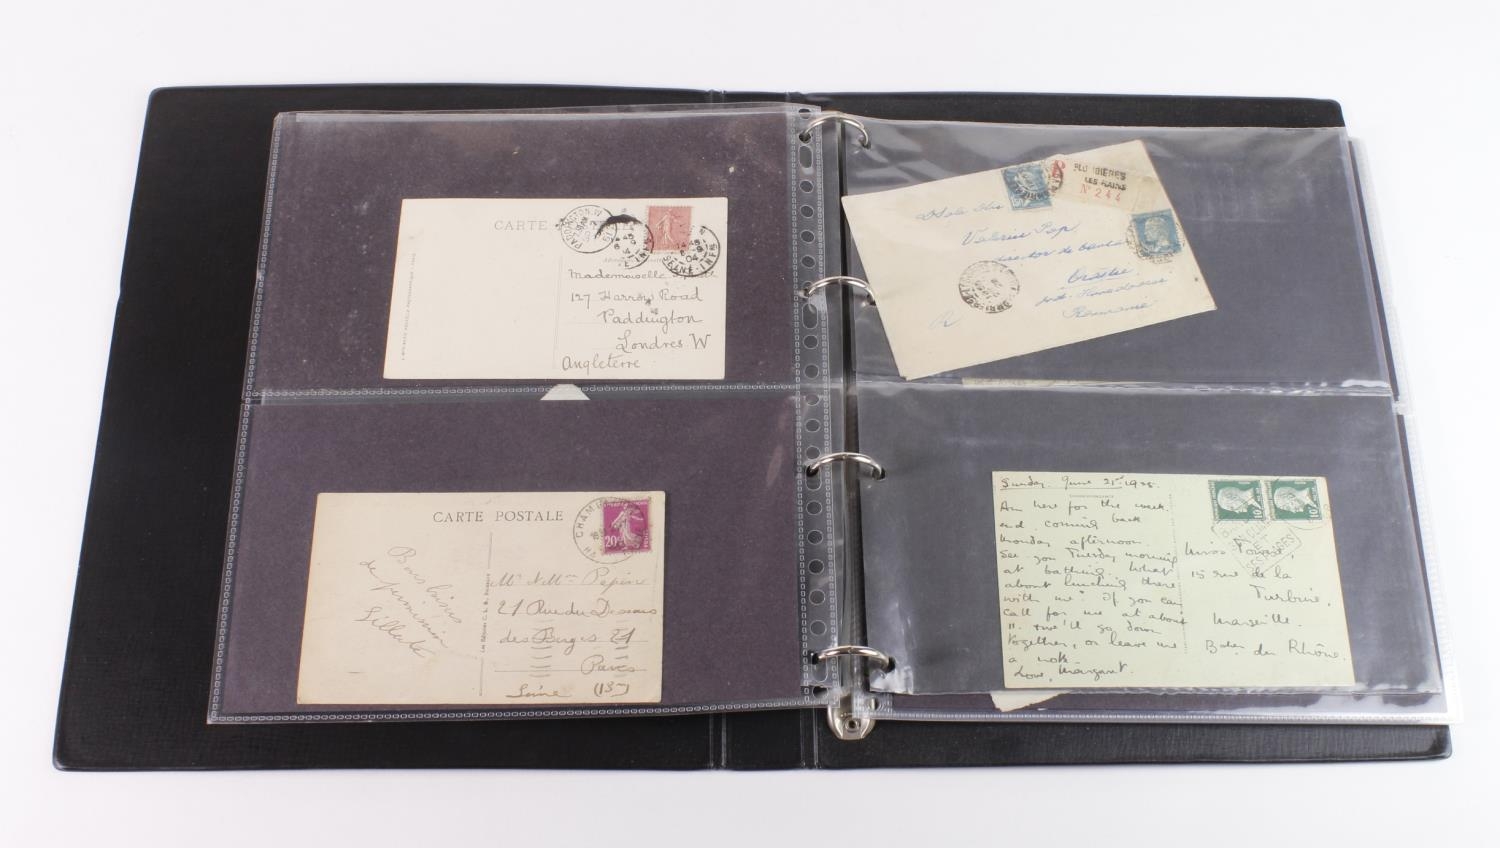 CARTE
PADDINGTON. W
Mademoiselle
127 Harrow Road
Paddington
Londres W
Angleterre
CARTE POSTALE
20c
Bons baisers
Mr & Mme Pepin
21 Rue du Dessous
des Berges 21
Paris
Seine (13)
R
PLOMBIERES
LES BAINS
N° 244
Valeriu Pop
director de
Orastie
Roumanie
R
Sunday. June 21st 1925.
Am here for the week
end. coming back
Monday afternoon.
See you Tuesday morning
at bathing. What
about lunching there
with me? If you can
call for me at about
11. & we'll go down
together, or leave me
a note.
Love, Margaret.
10c
10c
Miss
15 rue de la
Turbine.
Marseille.
Bches du Rhône.